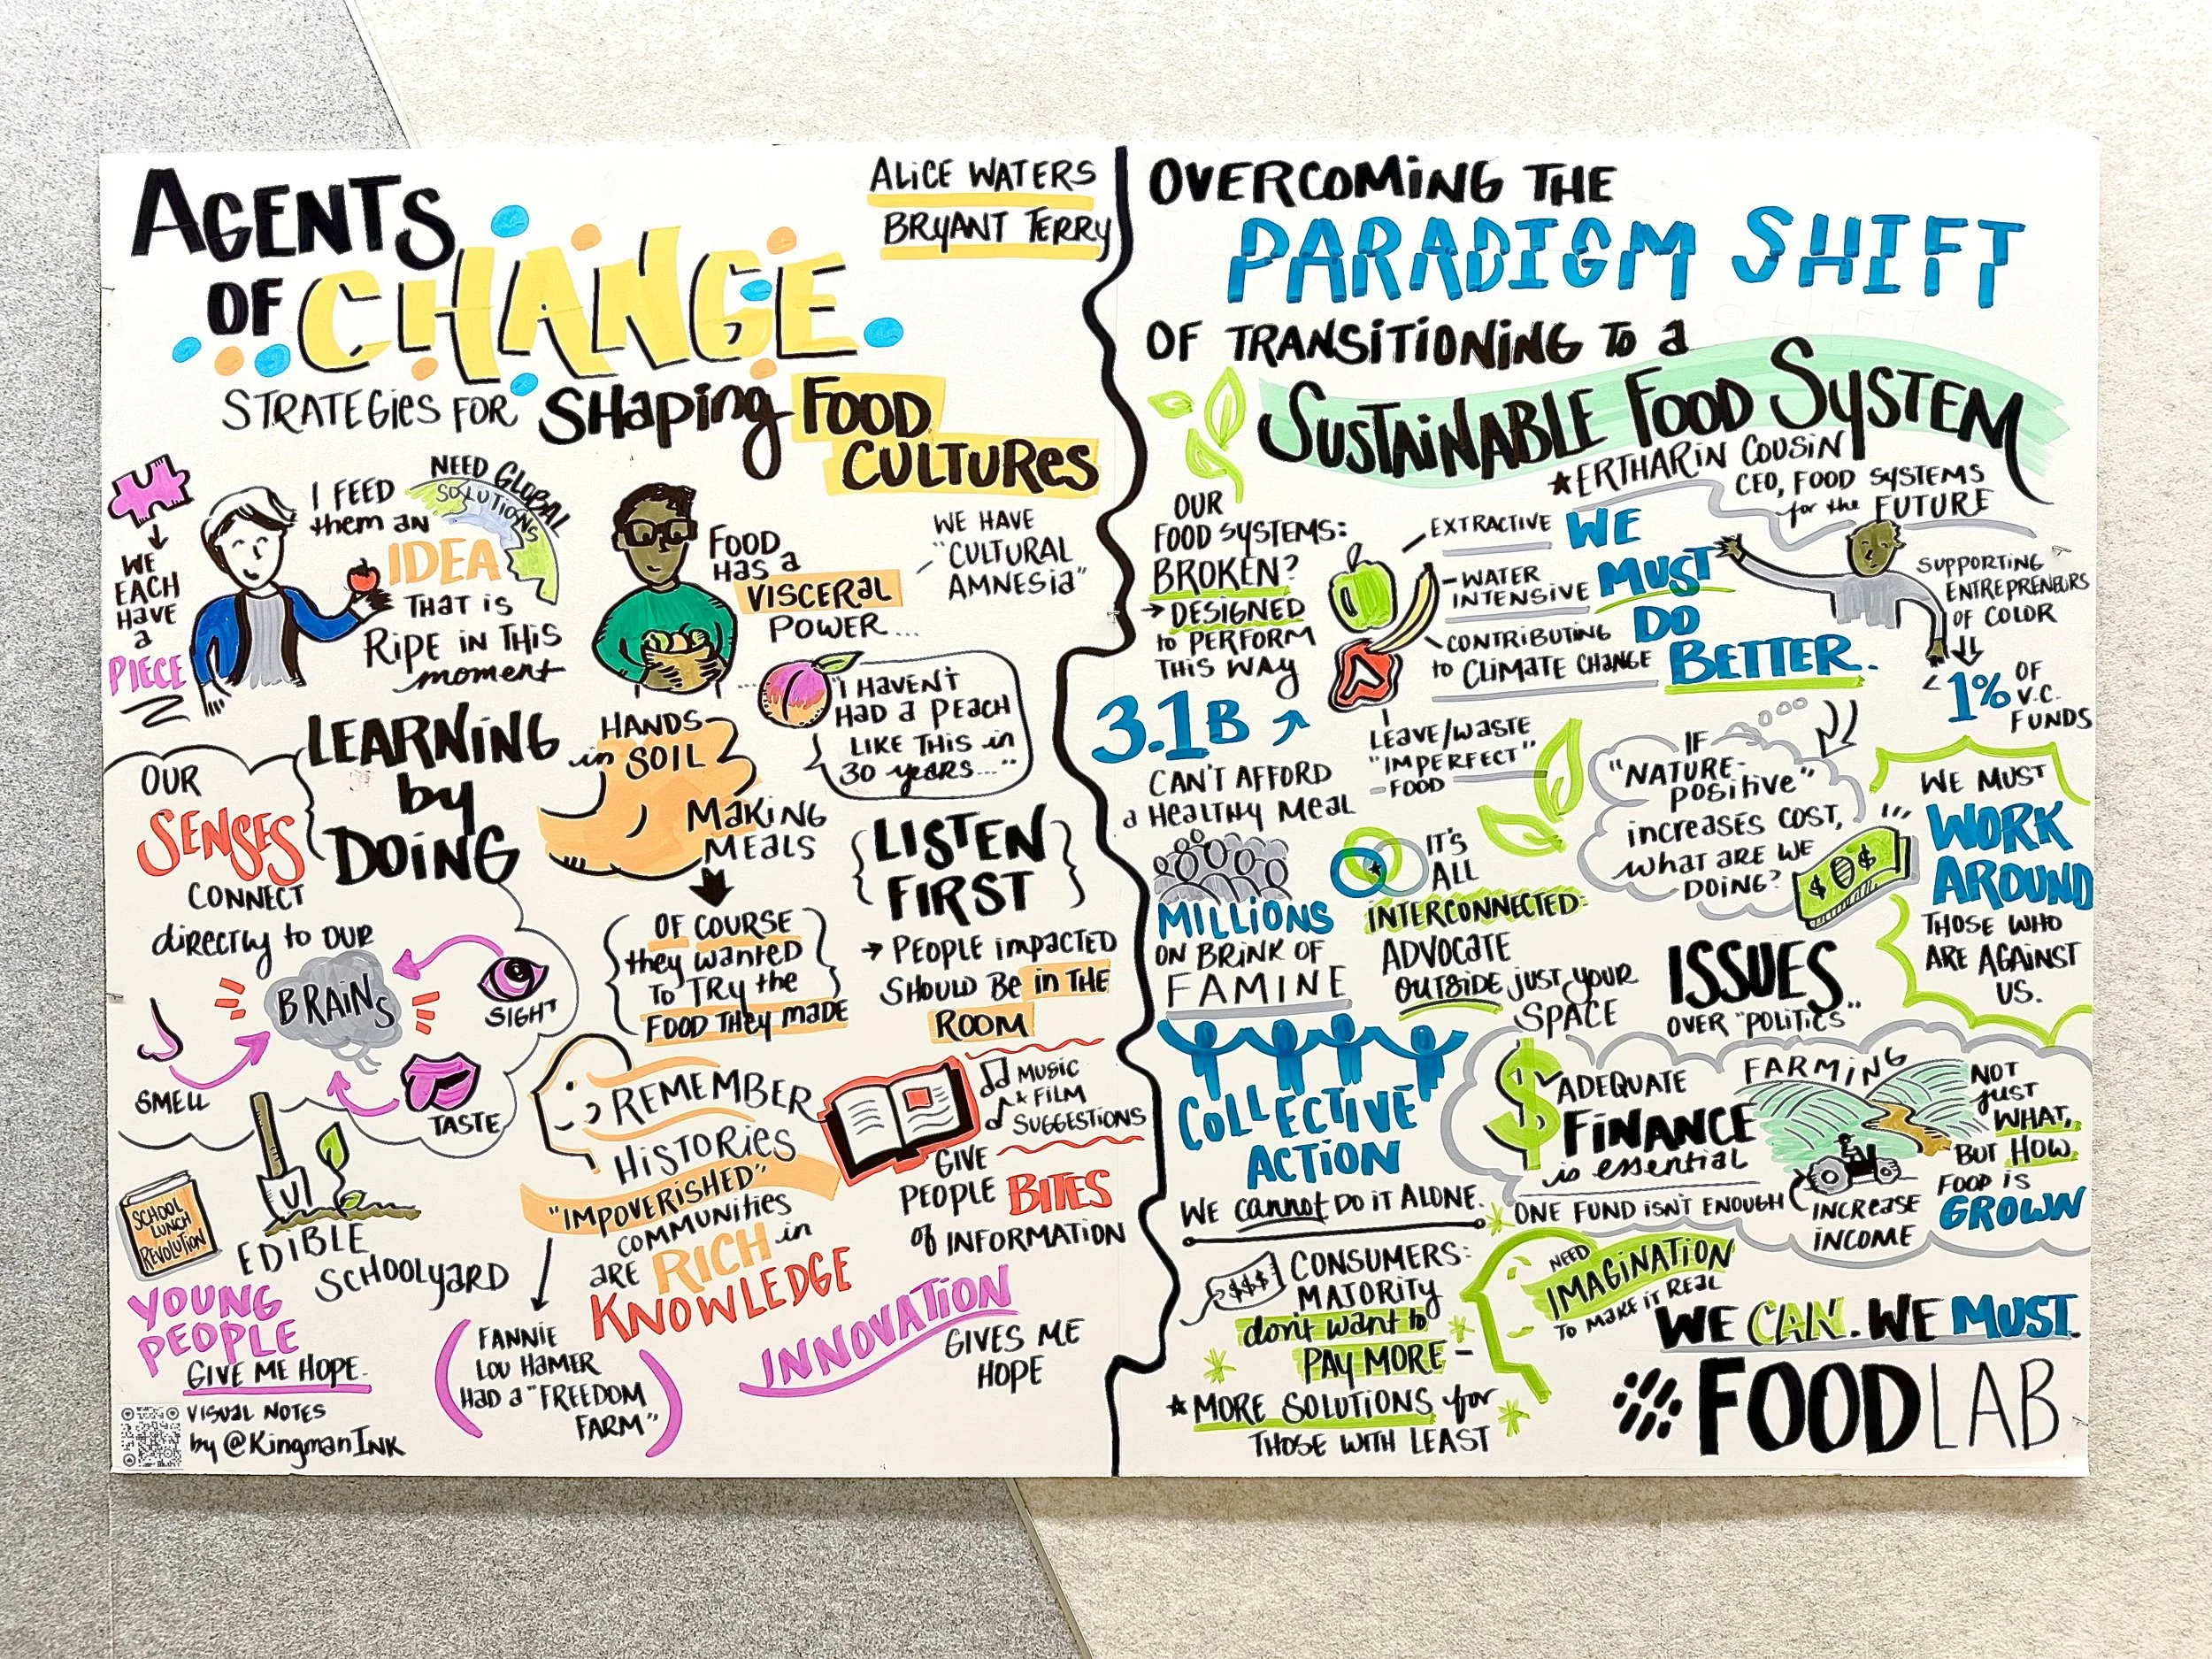 AGENTS
OF CHANGE
STRATEGIES FOR SHAPING FOOD
CULTURES
ALICE WATERS
BRYANT TERRY
WE
EACH
HAVE
a
PIECE
I FEED
them AN
IDEA
THAT IS
RIPE IN THIS
moment
NEED GLOBAL
SOLUTIONS
FOOD
HAS a
VISCERAL
POWER....
WE HAVE
"CULTURAL
AMNESIA"
"I HAVEN'T
HAD a PEACH
LIKE THIS in
30 years..."
LEARNING
by
DOING
HANDS
in SOIL
MAKING
MEALS
OF COURSE
they wanted
To TRy the
FOOD THEy MADE
LISTEN
FIRST
PEOPLE impacted
SHOULD BE IN THE
ROOM
OUR
SENSES
CONNECT
directly to OUR
BRAINS
SIGHT
SMELL
TASTE
SCHOOL
LUNCH
REVOLUTION
EDIBLE
SCHOOLyARD
YOUNG
PEOPLE
GIVE ME HOPE.
REMEMBER
HISTORIES
"IMPOVERISHED"
COMMUNITIES
ARE RICH in
KNOWLEDGE
FANNIE
LOU HAMER
HAD a "FREEDOM
FARM"
MUSIC
& FILM
SUGGESTIONS
GIVE
PEOPLE BITES
of INFORMATION
INNOVATION
GIVES ME
HOPE
VISUAL NOTES
by @KingmanInk
OVERCOMING THE
PARADIGM SHIFT
OF TRANSITIONING To a
SUSTAINABLE FOOD SYSTEM
ERTHARIN COUSIN
CEO, FOOD SYSTEMS
for the FUTURE
OUR
FOOD SYSTEMS:
BROKEN?
DESIGNED
to PERFORM
THIS WAy
EXTRACTIVE
-WATER
INTENSIVE
CONTRIBUTING
to CLIMATE CHANGE
LEAVE/WASTE
"IMPERFECT"
-FOOD
WE
MUST
DO
BETTER.
SUPPORTING
ENTREPRENEURS
OF COLOR
<1% OF
V.C.
FUNDS
3.1B
CAN'T AFFORD
a HEALTHY MEAL
MILLIONS
ON BRINK OF
FAMINE
IT'S
ALL
INTERCONNECTED:
ADVOCATE
OUTSIDE JUST yOUR
SPACE
IF
"NATURE-
POSITIVE"
increases COST,
what ARE WE
DOING?
WE MUST
WORK
AROUND
THOSE WHO
ARE AGAINST
US.
ISSUES..
OVER "POLITICS"
COLLECTIVE
ACTION
WE cannot DO IT ALONE.
$ ADEQUATE
FINANCE
is essential
ONE FUND ISN'T ENOUGH
FARMING
INCREASE
INCOME
NOT
JUST
WHAT,
BUT HOW
FOOD IS
GROWN
$$$
CONSUMERS:
MAJORITY
don't want to
PAY MORE -
MORE SOLUTIONS for
THOSE WITH LEAST
NEED
IMAGINATION
TO MAKE IT REAL
WE CAN. WE MUST.
FOODLAB